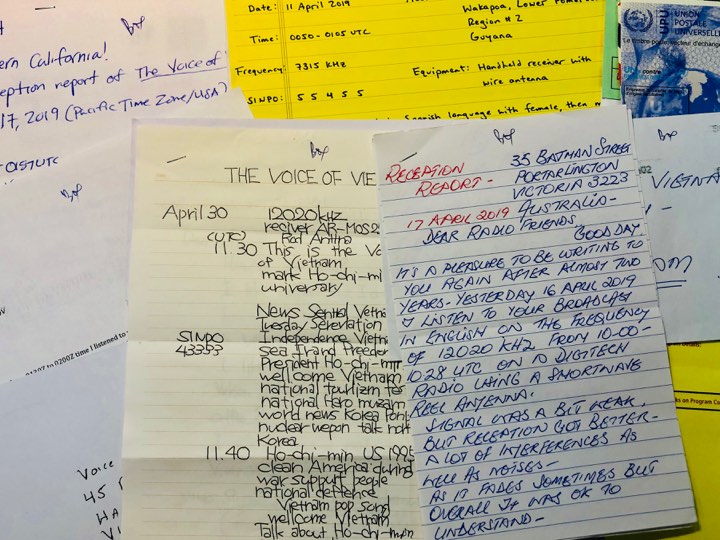 ern California!
eption report of The Voice of
17, 2019 (Pacific Time Zone/USA)
0157UTC
Date: 11 April 2019
Wakapoa, Lower
Time: 0050-0105 UTC
Region #2
Guyana
Frequency: 7315 KHz
Equipment: Handheld receiver with
wire antenna
SINPO: 5 5 4 5 5
Spanish language with female, then
UPU
UNION
POSTALE
UNIVERSELLE
THE VOICE OF VIE
April 30 12020 kHz
reciver AR-MOS2
(UTC)
11.30 This is the Vo
of Vietnam
mark Ho-chi-mi
univerary
News Sentral Vetn
Tuesday
SINPO Independence Vietn
43333 sea Irand Freedom
President Ho-chi-mi
wellcome Vietnam
national
national Hero muzam
word news Korea
nuclear wepon talk
Korea
11.40 Ho-chi-min US 1995
clean America during
war support people
national deftence
Vietnam pop song
wellcome Vietnam
Talk about Ho-chi-min
RECEPTION
REPORT-
35 BATMAN STREET
PORTARLINGTON
VICTORIA 3223
AUSTRALIA-
17 APRIL 2019
DEAR RADIO FRIENDS
GOOD DAY
IT'S A PLEASURE TO BE WRITING TO
YOU AGAIN AFTER ALMOST TWO
YEARS- YESTERDAY 16 APRIL 2019
I LISTEN TO YOUR BROADCAST
IN ENGLISH ON THE FREQUENCY
OF 12020 KHZ FROM 10.00-
10.28 UTC ON A DIGITECH
RADIO USING A SHORTWAVE
REEL ANTENNA.
SIGNAL WAS A BIT WEAK,
BUT RECEPTION GOT BETTER-
A LOT OF INTERFERENCES AS
WELL AS NOISES-
AS IT FADES SOMETIMES BUT
OVERALL IT WAS OK TO
UNDERSTAND-
VIETNA
0200Z time I listened to
Voice
45
HA
V
ks on Program Co